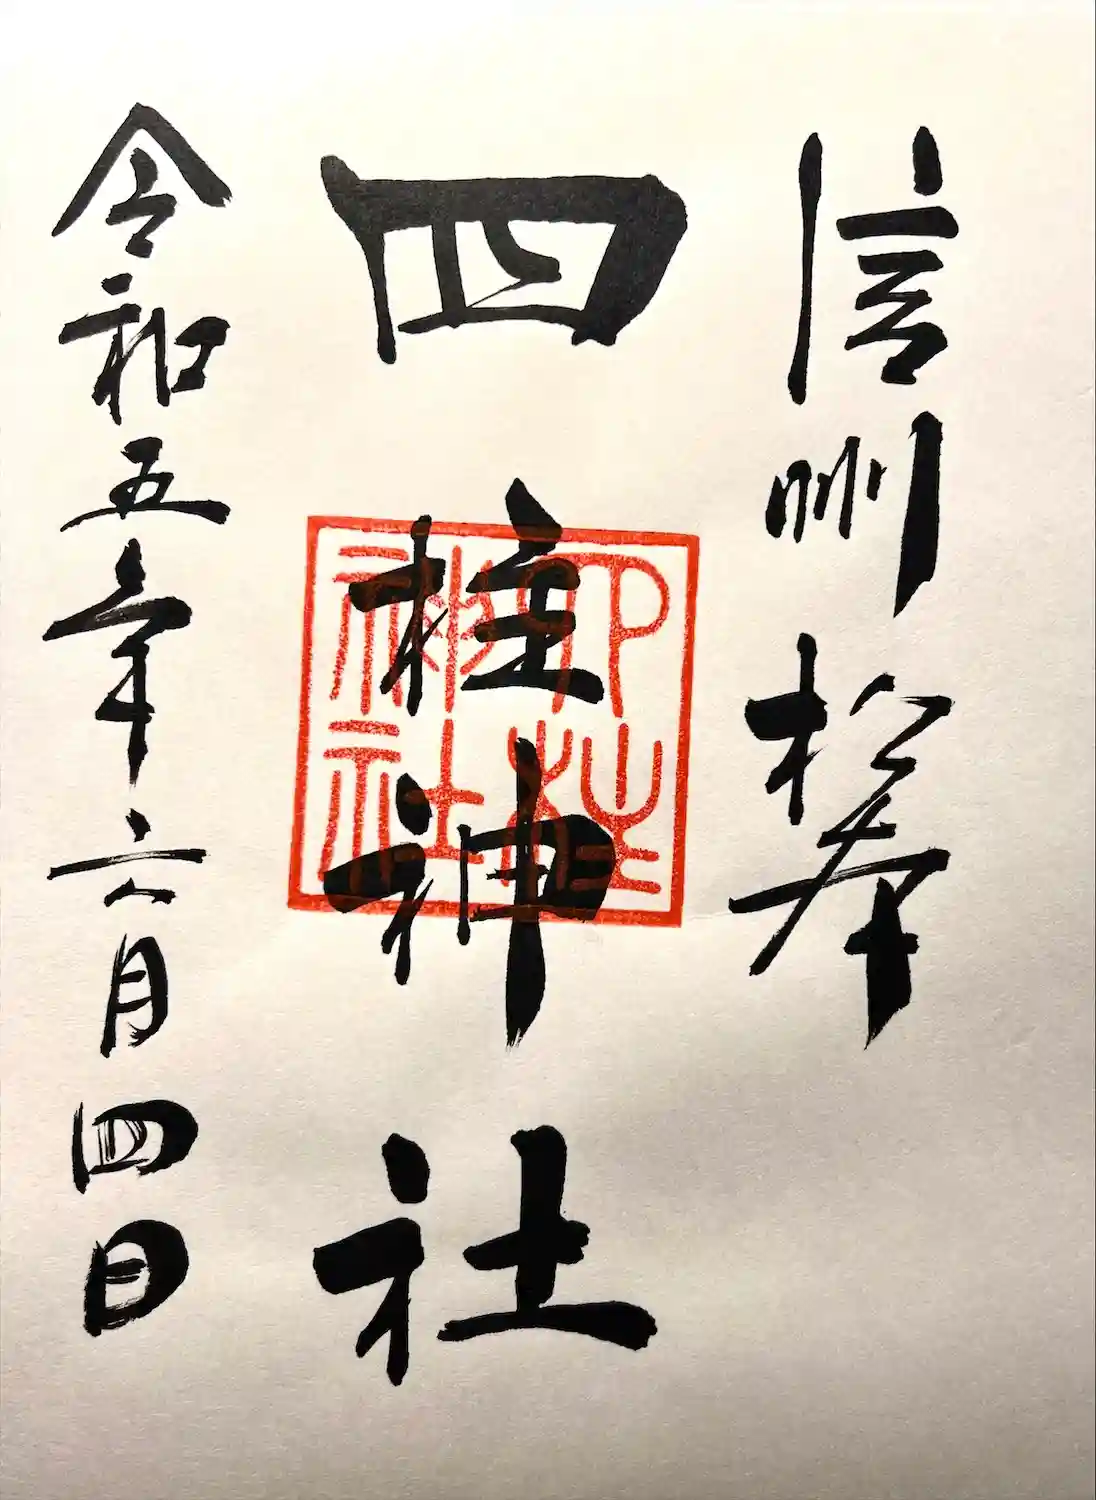 信州松本
四柱神社
令和五年六月四日
四柱神社